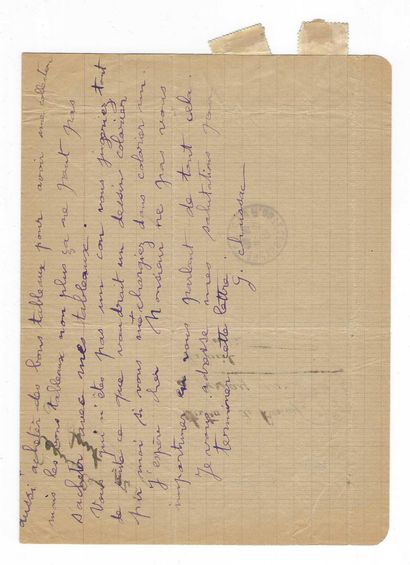 aussi acheter des bons tableaux pour avoir une collection
mais les bons tableaux non plus ça ne peut pas
s'acheter avec une tableaux.
Vous qui n'êtes pas un con vous jugeriez tout
de suite ce que vaudrait un dessin colorier
par moi si vous me chargiez dans colorier un.
J'espère cher Monsieur ne pas vous
importuner en vous parlant de tout cela.
Je vous adresse mes salutations pour
terminer cette lettre.
G. Chaissac